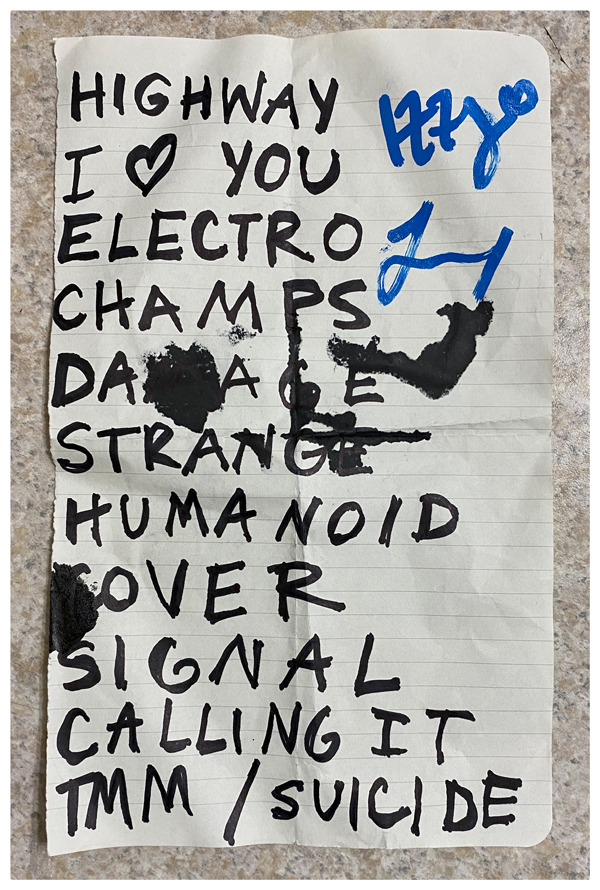 HIGHWAY
I ♥ YOU
ELECTRO
CHAMPS
STRANGE
HUMANOID
COVER
SIGNAL
CALLING IT
TMM / SUICIDE
Izzy